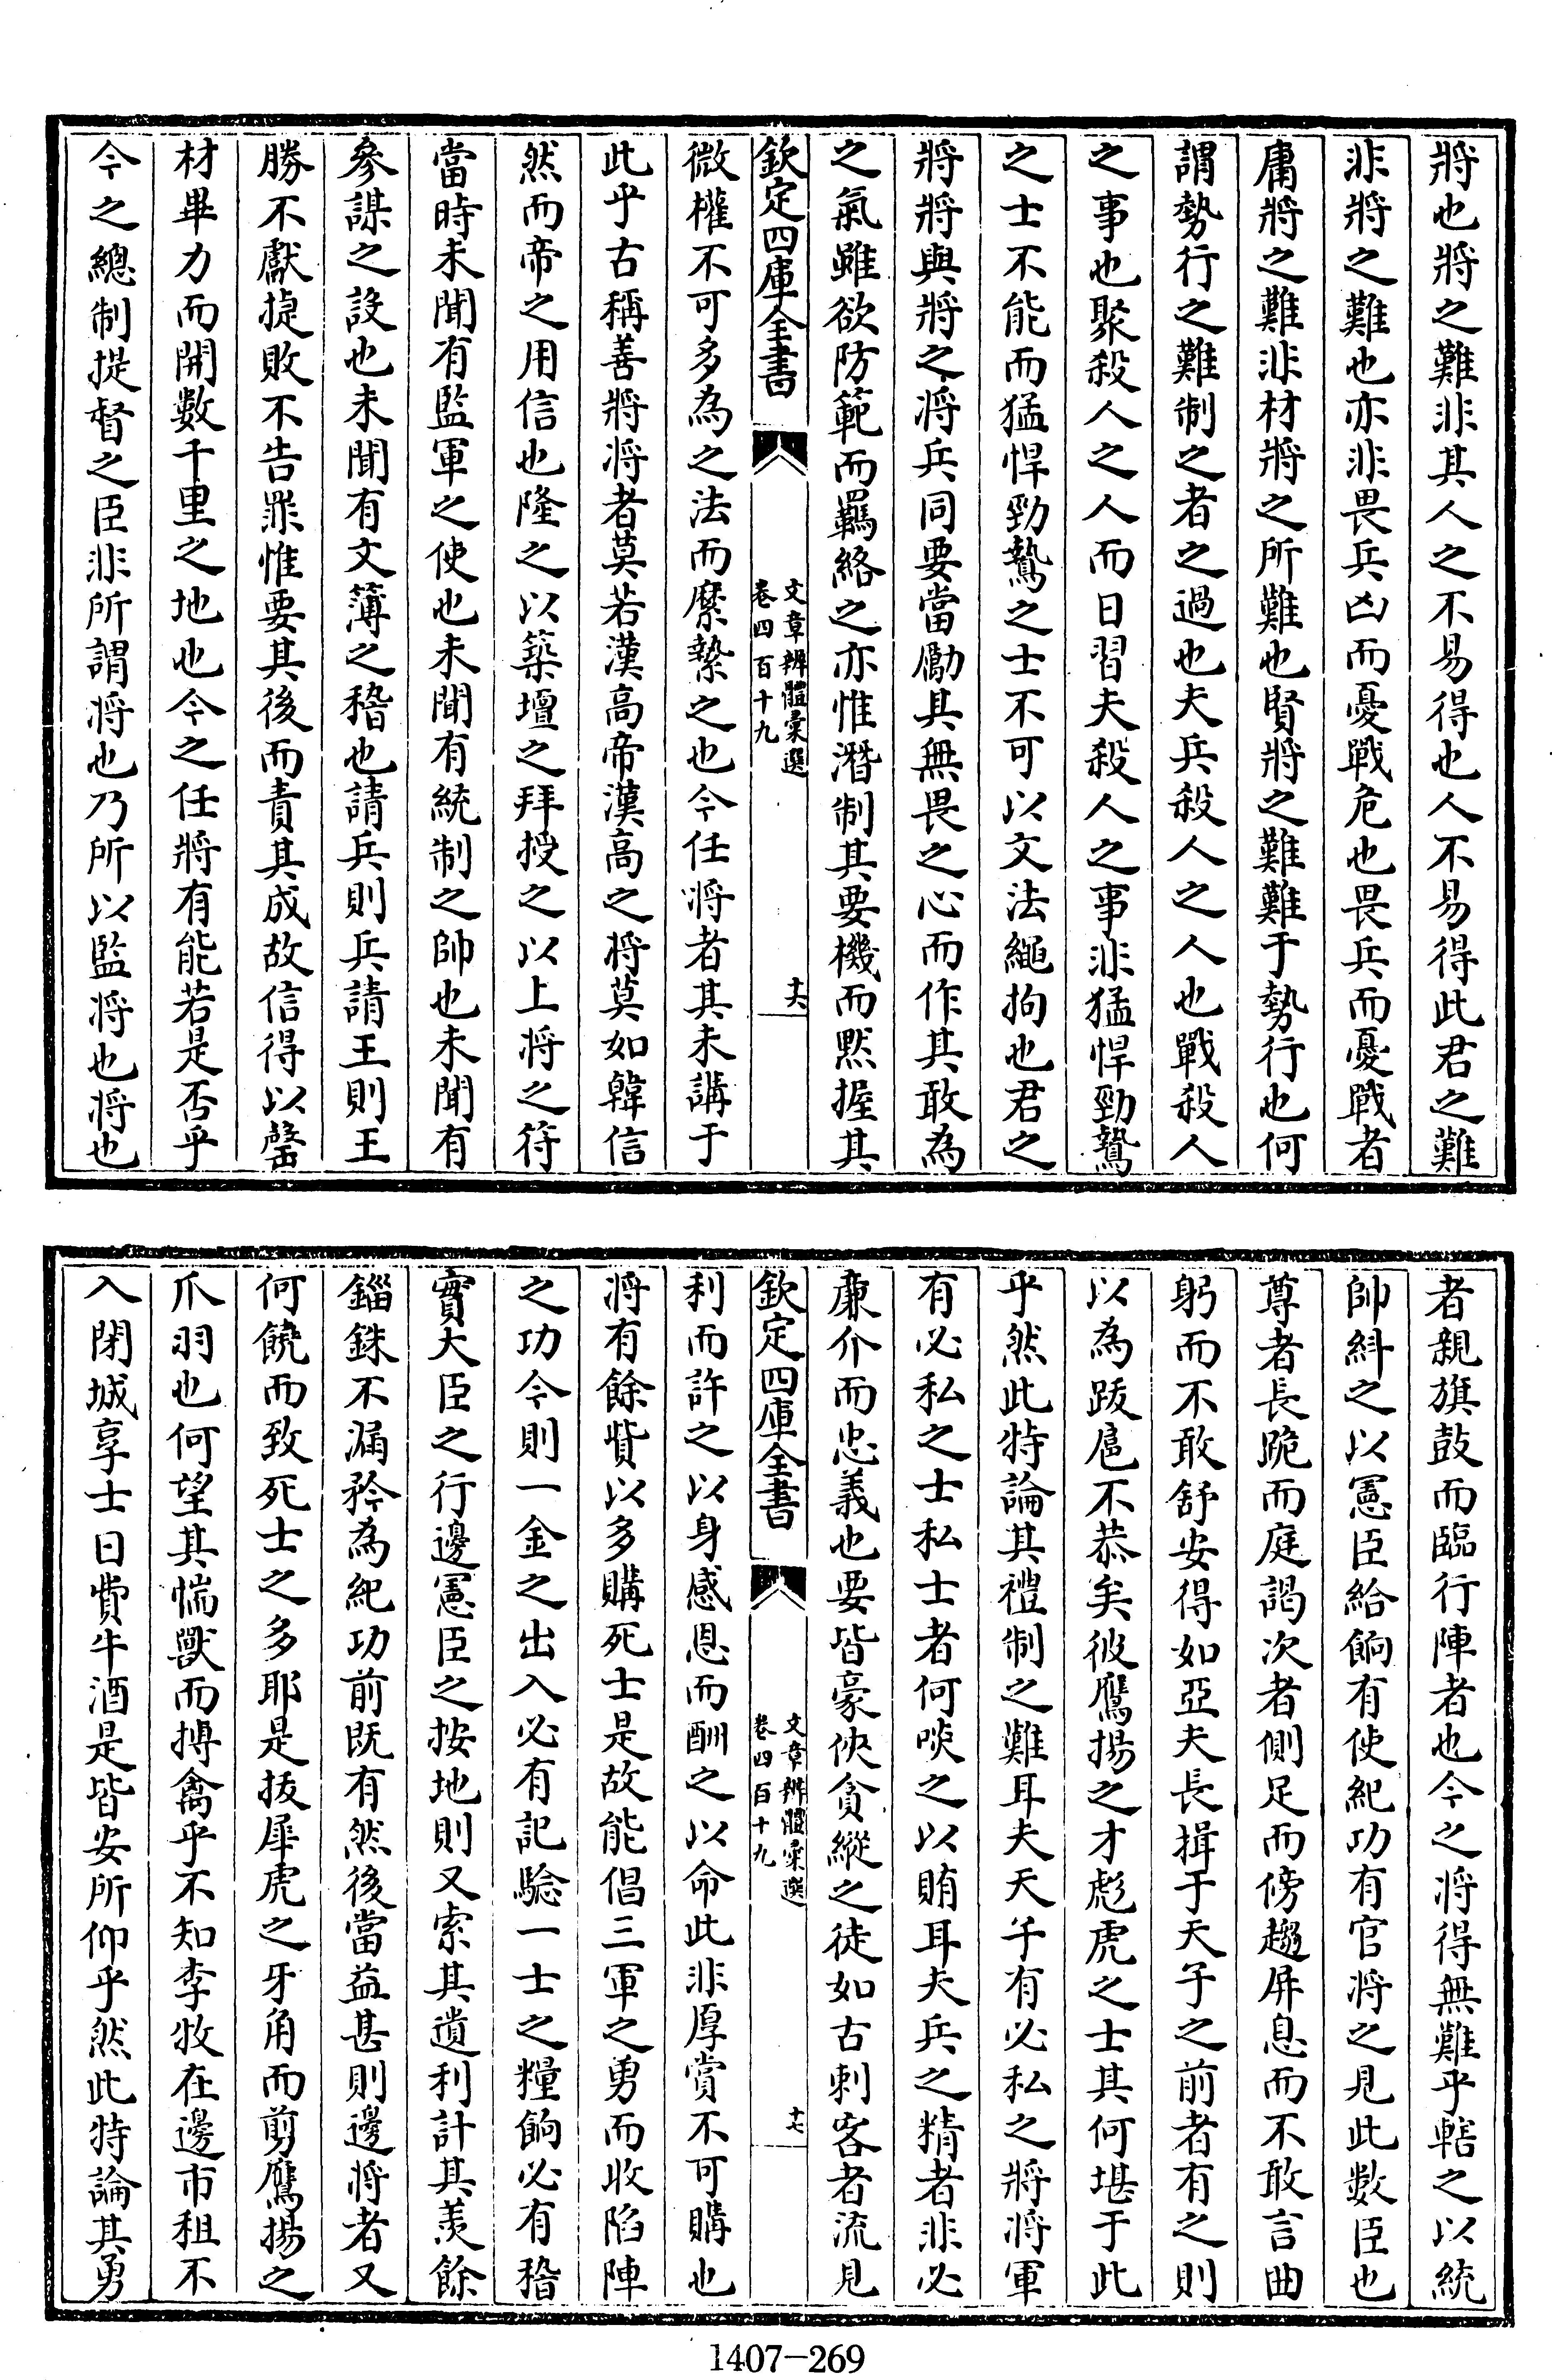 將也將之難非其人之不易得也人不易得此君之難
非將之難也亦非畏兵凶而憂戰危也畏兵而憂戰者
庸將之難非材將之所難也賢將之難難于勢行也何
謂勢行之難制之者之過也夫兵殺人之人也戰殺人
之事也聚殺人之人而日習夫殺人之事非猛悍勁鷙
之士不能而猛悍勁鷙之士不可以文法繩拘也君之
將將與將之將兵同要當勵其無畏之心而作其敢為
之氣雖欲防範而羈絡之亦惟潛制其要機而黙握其
欽定四庫全書
文章辨體彙選
卷四百十九
十六
微權不可多為之法而縻縶之也今任將者其未講于
此乎古稱善將將者莫若漢高帝漢高之將莫如韓信
然而帝之用信也隆之以築壇之拜授之以上將之符
當時未聞有監軍之使也未聞有統制之帥也未聞有
參謀之設也未聞有文簿之稽也請兵則兵請王則王
勝不獻捷敗不告罪惟要其後而責其成故信得以罄
材畢力而開數千里之地也今之任將有能若是否乎
今之總制提督之臣非所謂將也乃所以監將也將也
者親旗鼓而臨行陣者也今之將得無難乎轄之以統
帥糾之以憲臣給餉有使紀功有官將之見此數臣也
尊者長跪而庭謁次者側足而傍趨屏息而不敢言曲
躬而不敢舒安得如亞夫長揖于天子之前者有之則
以為跋扈不恭矣彼鷹揚之才彪虎之士其何堪于此
乎然此特論其禮制之難耳夫天子有必私之將將軍
有必私之士私士者何啖之以賄耳夫兵之精者非必
廉介而忠義也要皆豪俠貪縱之徒如古刺客者流見
欽定四庫全書
文章辨體彙選
卷四百十九
十七
利而許之以身感恩而酬之以命此非厚賞不可購也
將有餘貲以多購死士是故能倡三軍之勇而收陷陣
之功今則一金之出入必有記驗一士之糧餉必有稽
實大臣之行邊憲臣之按地則又索其遺利計其羨餘
錙銖不漏矜為紀功前既有然後當益甚則邊將者又
何饒而致死士之多耶是拔犀虎之牙角而剪鷹揚之
爪羽也何望其惴獸而搏禽乎不知李牧在邊市租不
入閉城享士日費牛酒是皆安所仰乎然此特論其勇
1407-269